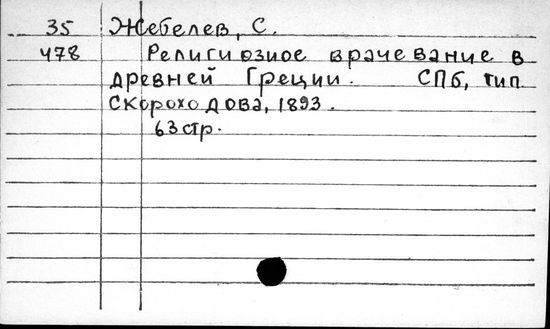 35 Жебелев, С.
478 Религиозное врачевание в
древней Греции. СПб, тип
Скороходова, 1893.
63 стр.